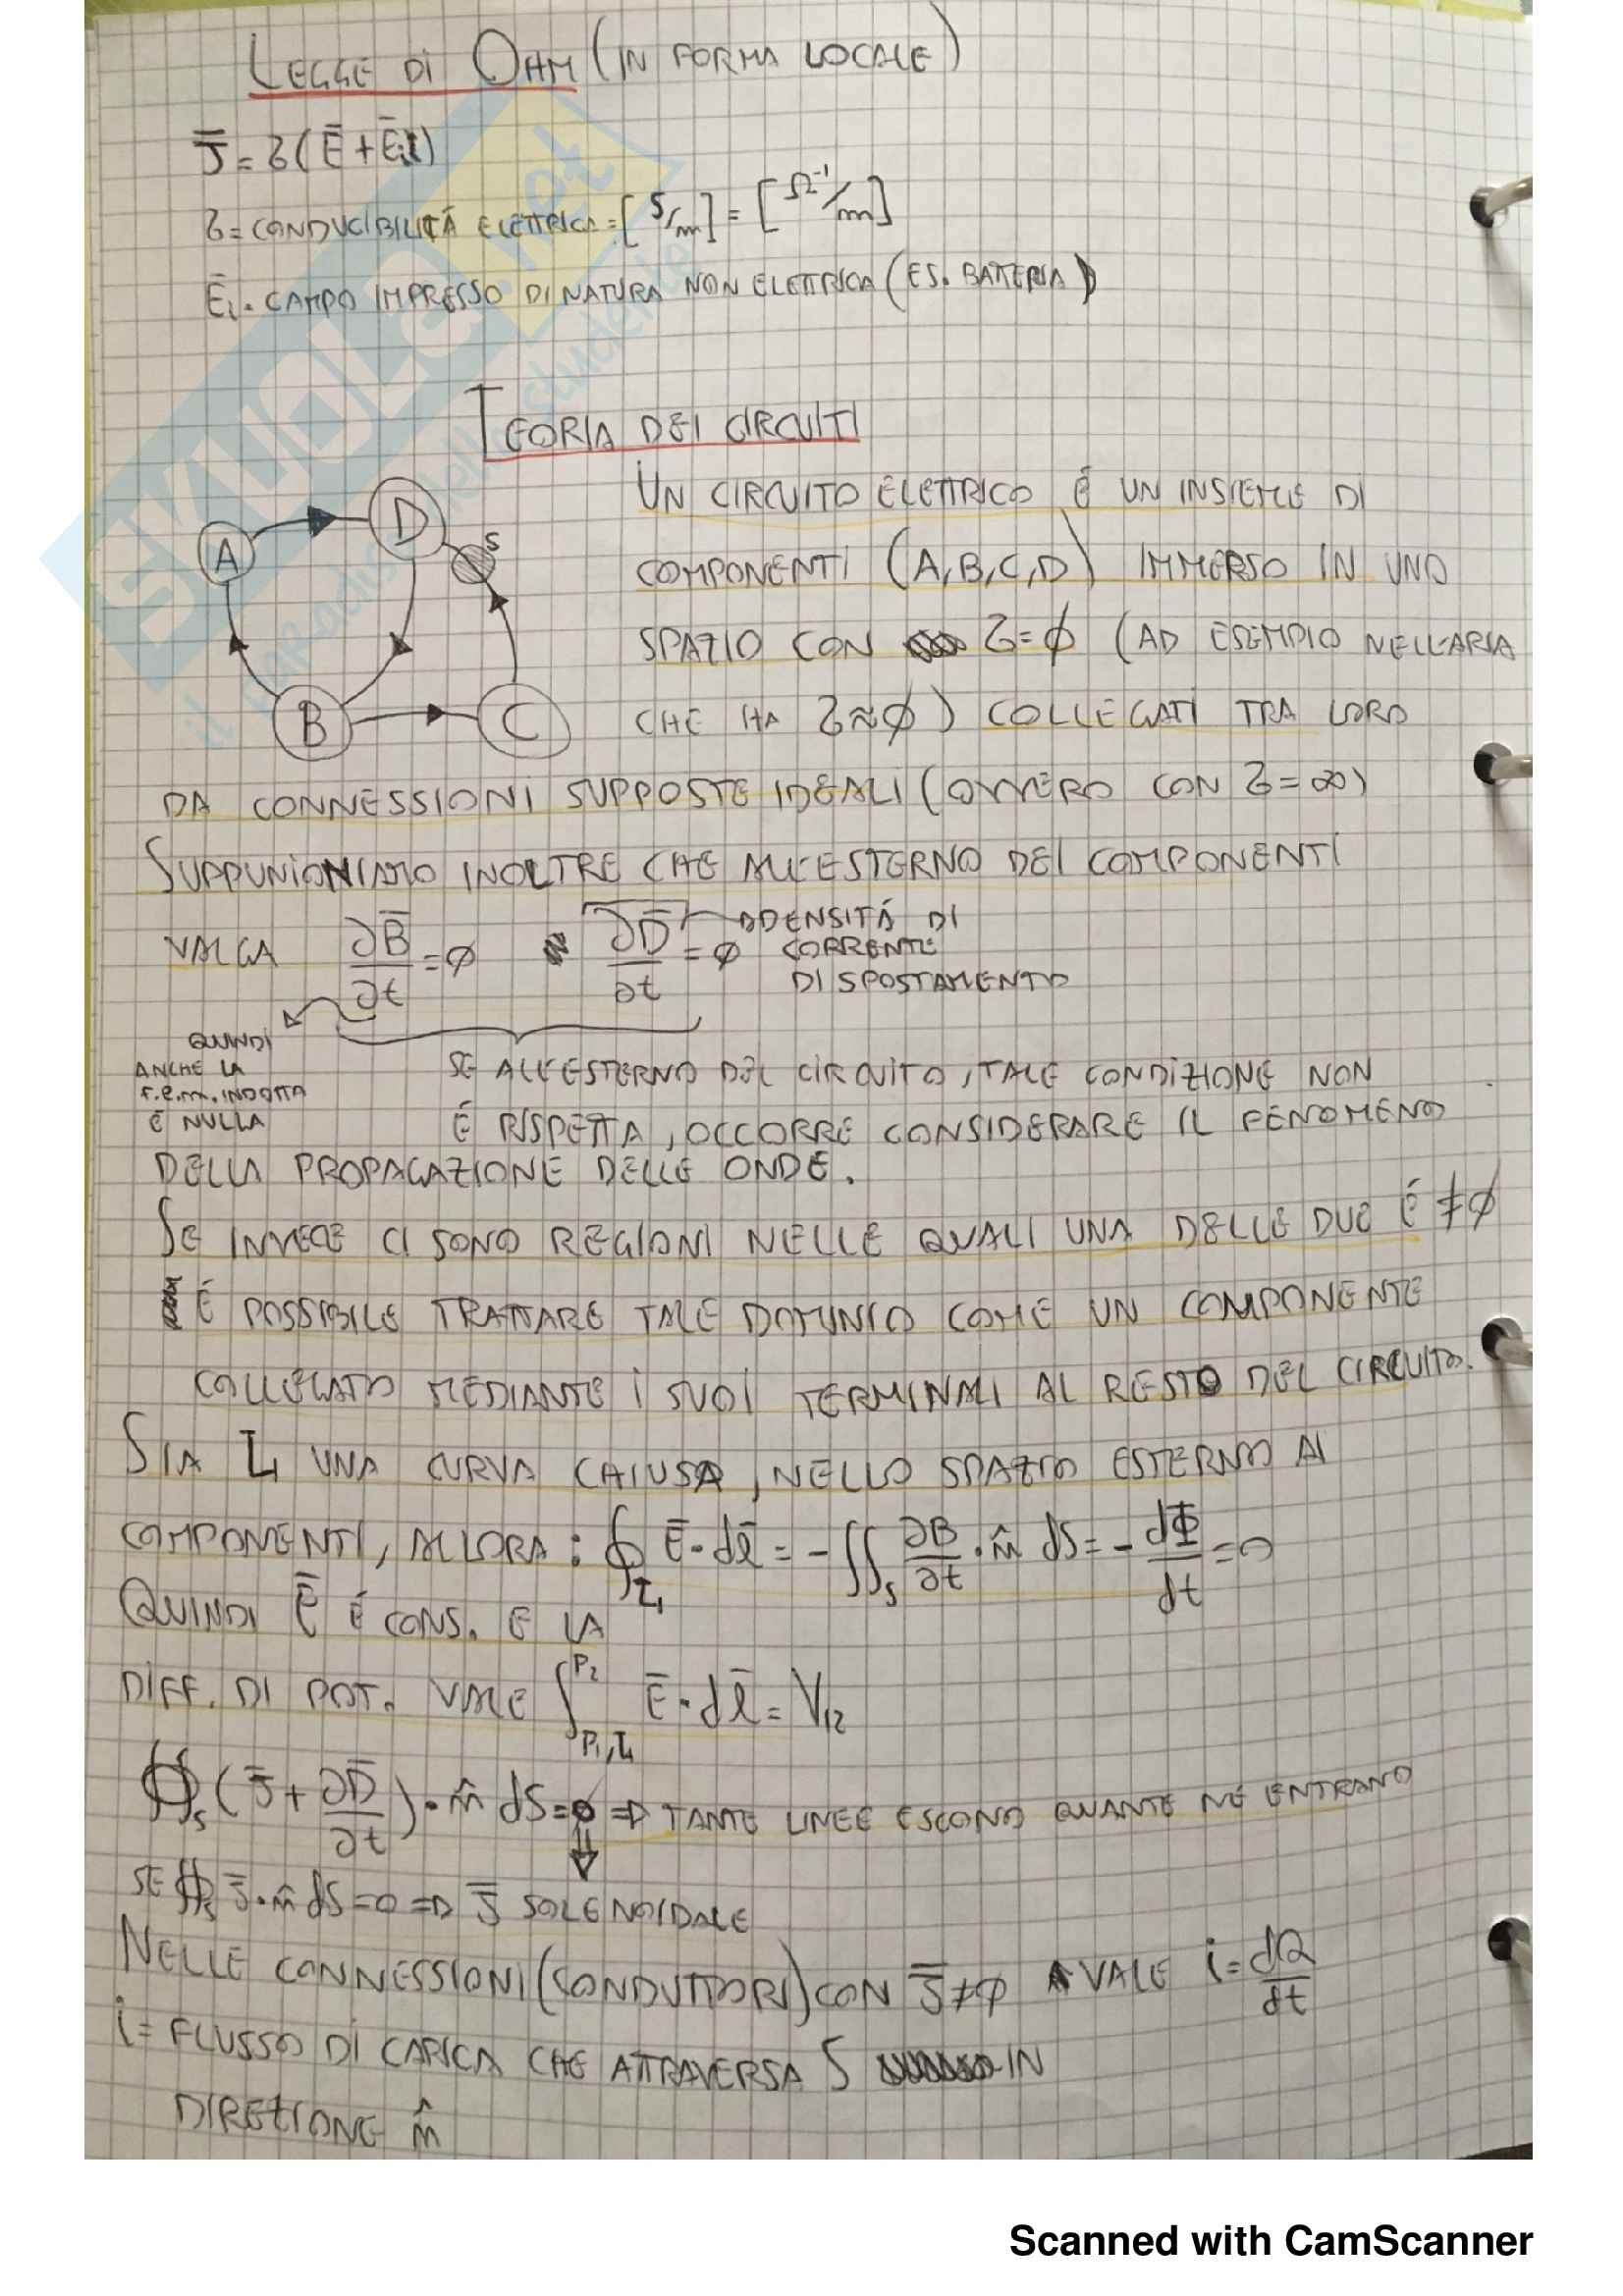 LEGGE DI OHM (IN FORMA LOCALE)
J̅ = σ(E̅ + E̅i)
σ = CONDUCIBILITÁ ELETTRICA = [S/m] = [Ω⁻¹/m]
E̅i = CAMPO IMPRESSO DI NATURA NON ELETTRICA (ES. BATTERIA)
TEORIA DEI CIRCUITI
UN CIRCUITO ELETTRICO É UN INSIEME DI
COMPONENTI (A,B,C,D) IMMERSO IN UNO
SPAZIO CON σ=∅ (AD ESEMPIO NELL'ARIA
CHE HA σ≈∅) COLLEGATI TRA LORO
A
D
S
B
C
DA CONNESSIONI SUPPOSTE IDEALI (OVVERO CON σ=∞)
SUPPUNIONIAMO INOLTRE CHE ALL'ESTERNO DEI COMPONENTI
VALGA ∂B̅/∂t = ∅ ∂D̅/∂t = ∅
DENSITÁ DI
CORRENTE
DI SPOSTAMENTO
QUINDI
ANCHE LA
F.e.m. INDOTTA
É NULLA
SE ALL'ESTERNO DEL CIRCUITO, TALE CONDIZIONE NON
É RISPETTA, OCCORRE CONSIDERARE IL FENOMENO
DELLA PROPAGAZIONE DELLE ONDE.
SE INVECE CI SONO REGIONI NELLE QUALI UNA DELLE DUE É ≠∅
É POSSIBILE TRATTARE TALE DOMINIO COME UN COMPONENTE
COLLEGATO MEDIANTE I SUOI TERMINALI AL RESTO DEL CIRCUITO.
SIA L UNA CURVA CHIUSA, NELLO SPAZIO ESTERNO AI
COMPONENTI, ALLORA: ∮_L E̅·dl̅ = -∬_S ∂B/∂t · n̂ dS = -dΦ/dt = 0
QUINDI E̅ É CONS. E LA
DIFF. DI POT. VALE ∫_{P₁,L}^{P₂} E̅·dl̅ = V₁₂
∯_S (J̅ + ∂D̅/∂t)·n̂ dS = ∅ ⇒ TANTE LINEE ESCONO QUANTE NE ENTRANO
⇓
SE ∯_S J̅·n̂ dS = 0 ⇒ J̅ SOLENOIDALE
NELLE CONNESSIONI (CONDUTTORI) CON J̅≠∅ VALE i = dQ/dt
i = FLUSSO DI CARICA CHE ATTRAVERSA S IN
DIREZIONE n̂
SKUOLA.net
Scanned with CamScanner